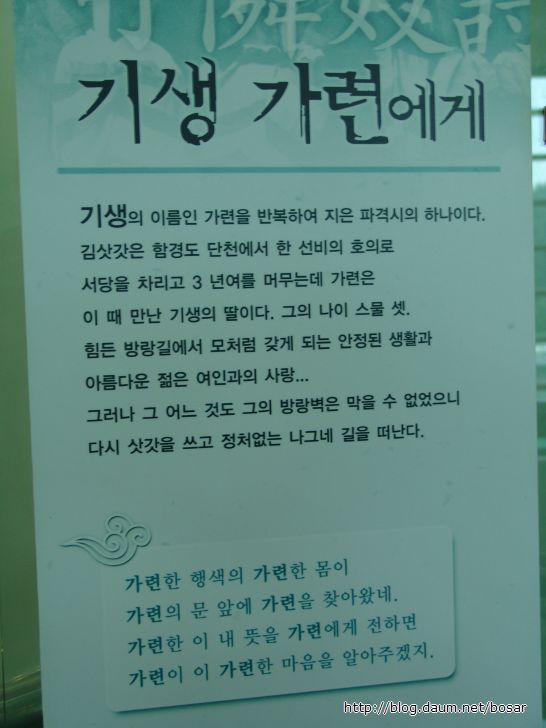 憐妓詩
기생 가련에게
기생의 이름인 가련을 반복하여 지은 파격시의 하나이다.
김삿갓은 함경도 단천에서 한 선비의 호의로
서당을 차리고 3 년여를 머무는데 가련은
이 때 만난 기생의 딸이다. 그의 나이 스물 셋.
힘든 방랑길에서 모처럼 갖게 되는 안정된 생활과
아름다운 젊은 여인과의 사랑...
그러나 그 어느 것도 그의 방랑벽은 막을 수 없었으니
다시 삿갓을 쓰고 정처없는 나그네 길을 떠난다.
가련한 행색의 가련한 몸이
가련의 문 앞에 가련을 찾아왔네.
가련한 이 내 뜻을 가련에게 전하면
가련이 이 가련한 마음을 알아주겠지.
http://blog.daum.net/bosar